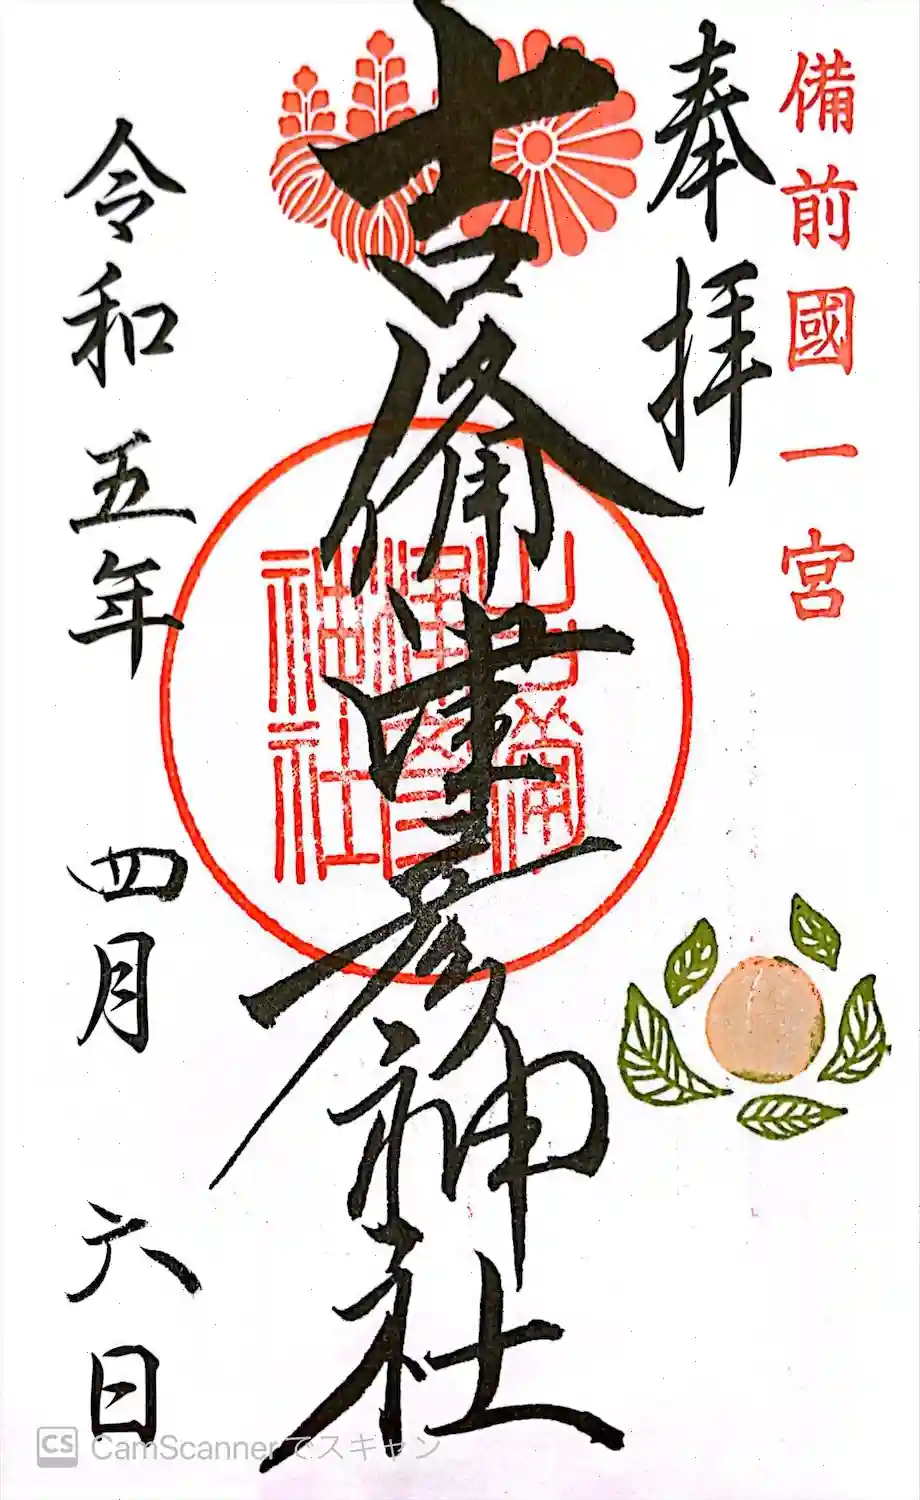 備前國一宮
奉拝
吉備津彦神社
吉備
津彦
神社
令和五年 四月 六日
CS CamScannerでスキャン